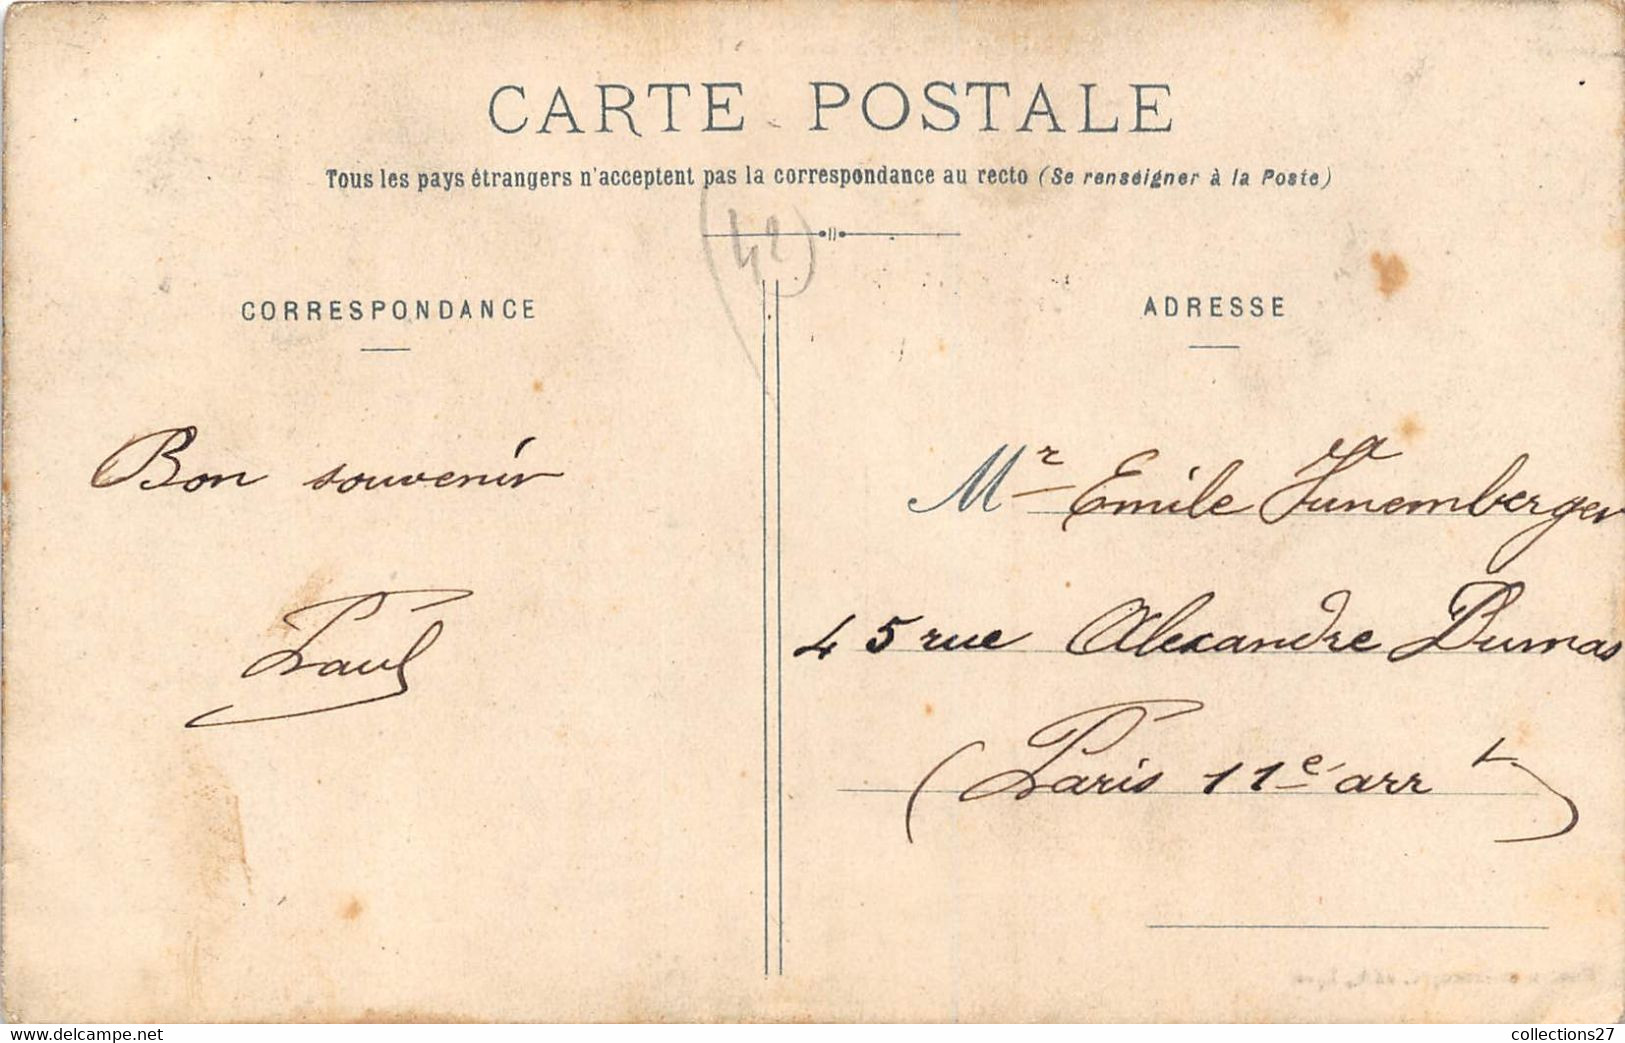 CARTE POSTALE
Tous les pays étrangers n'acceptent pas la correspondance au recto (Se renseigner à la Poste)
(42)
CORRESPONDANCE
ADRESSE
Bon souvenir
Paul
Mr Emile Junemberger
45 rue Alexandre Dumas
(Paris 11e arrt)
collections27